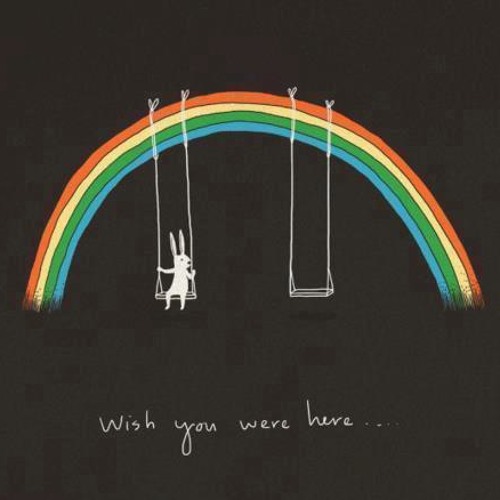 Wish you were here.....